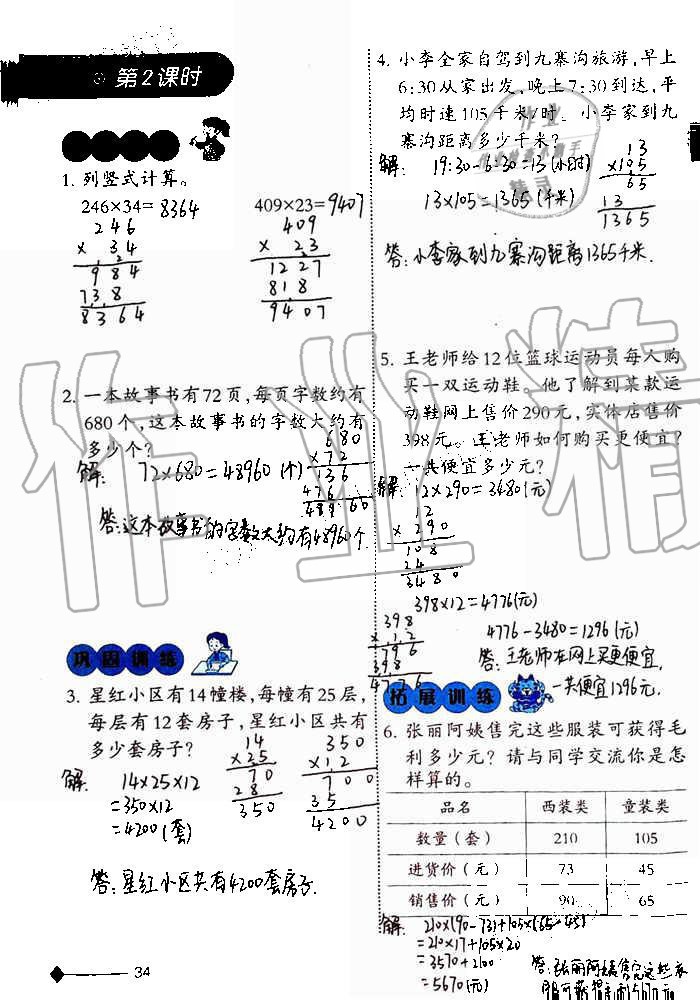 第2课时
1. 列竖式计算。
246×34=8364
246
× 34
984
738
8364
409×23=9407
409
× 23
1227
818
9407
2. 一本故事书有72页,每页字数约有
680个,这本故事书的字数大约有
多少个?
解: 72×680=48960(个)
680
×72
136
476
48960
答:这本故事书的字数大约有48960个.
巩固训练
3. 星红小区有14幢楼,每幢有25层,
每层有12套房子,星红小区共有
多少套房子?
解: 14×25×12
=350×12
=4200(套)
14
×25
70
28
350
350
×12
700
35
4200
答:星红小区共有4200套房子.
34
4. 小李全家自驾到九寨沟旅游,早上
6:30从家出发,晚上7:30到达,平
均时速105千米/时。小李家到九
寨沟距离多少千米?
解: 19:30-6:30=13(小时)
13×105=1365(千米)
13
×105
65
13
1365
答:小李家到九寨沟距离1365千米.
5. 王老师给12位篮球运动员每人购
买一双运动鞋。他了解到某款运
动鞋网上售价290元,实体店售价
398元。王老师如何购买更便宜?
一共便宜多少元?
解: 12×290=3480(元)
12
×290
108
24
3480
398×12=4776(元)
398
×12
796
398
4776
4776-3480=1296(元)
答:王老师在网上买更便宜,
一共便宜1296元.
拓展训练
6. 张丽阿姨售完这些服装可获得毛
利多少元?请与同学交流你是怎
样算的。
品名 西装类 童装类
数量(套) 210 105
进货价(元) 73 45
销售价(元) 90 65
解: 210×(90-73)+105×(65-45)
=210×17+105×20
=3570+2100
=5670(元)
答:张丽阿姨售完这些衣
作业精